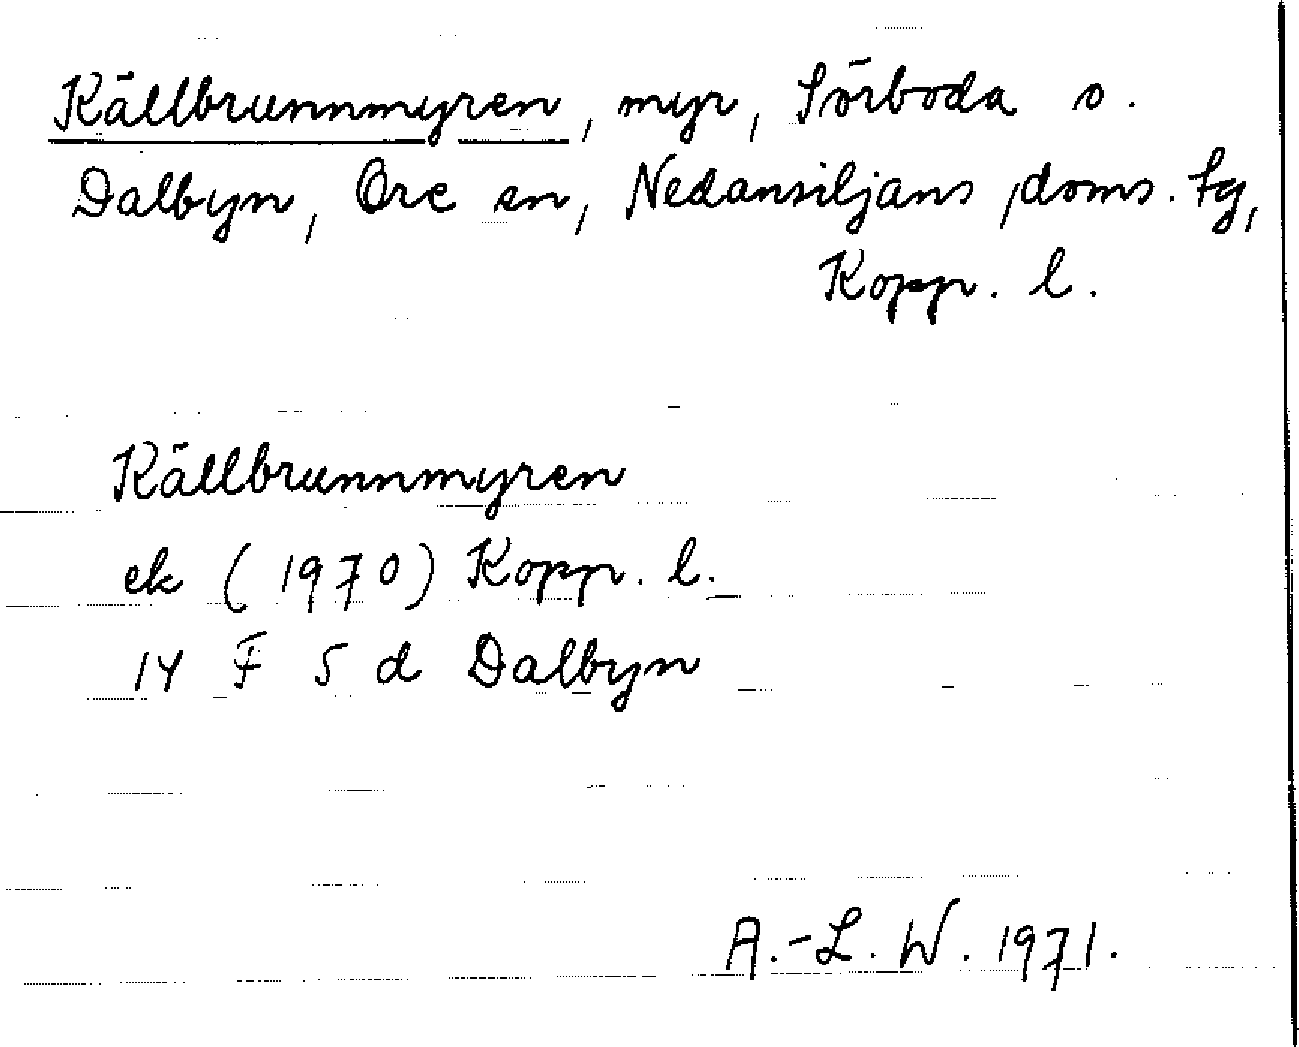 Källbrunnmyren, myr, Sörboda s.
Dalbyn, Ore sn, Nedansiljans doms. tg,
Kopp. l.
Källbrunnmyren
ek (1970) Kopp. l.
14 F 5 d Dalbyn
A.-L. W. 1971.